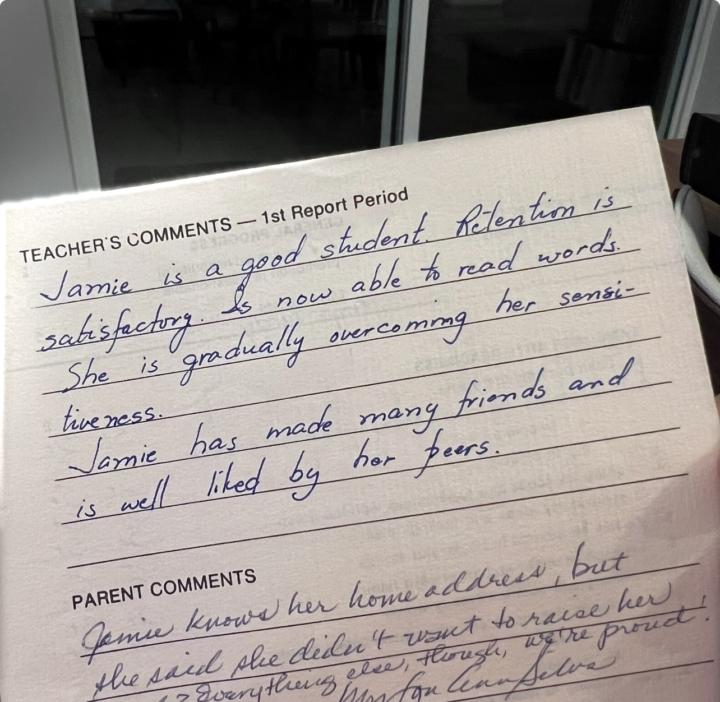 TEACHER'S COMMENTS — 1st Report Period
Jamie is a good student. Retention is
satisfactory. Is now able to read words.
She is gradually overcoming her sensi-
tiveness.
Jamie has made many friends and
is well liked by her peers.
PARENT COMMENTS
Jamie knows her home address, but
she said she didn't want to raise her
Everything else, though, we're proud!